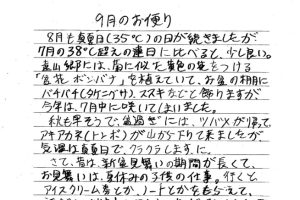 9月のお便り
8月も真夏日(35℃)の日が続きましたが
7月の38℃超えの連日に比べると、少し良い。
には、菊に似た黄色の花をつける
「盆花 ボンバナ」を植えていて、お盆の棚用に
ススキなどと飾りますが
今年は、7月中に咲いてしまいました。
秋も早そうで"盆過ぎ"には、ツバメが帰って
アキアカネ(トンボ)が山から下りて来ましたが
気温は真夏日で、クラクラします。
さて、昔は、新盆見舞いの期間が長くて、
お見舞いは、夏休みの子供の仕事。行くと
アイスクリーム券とか、ノートとかをもらえて、